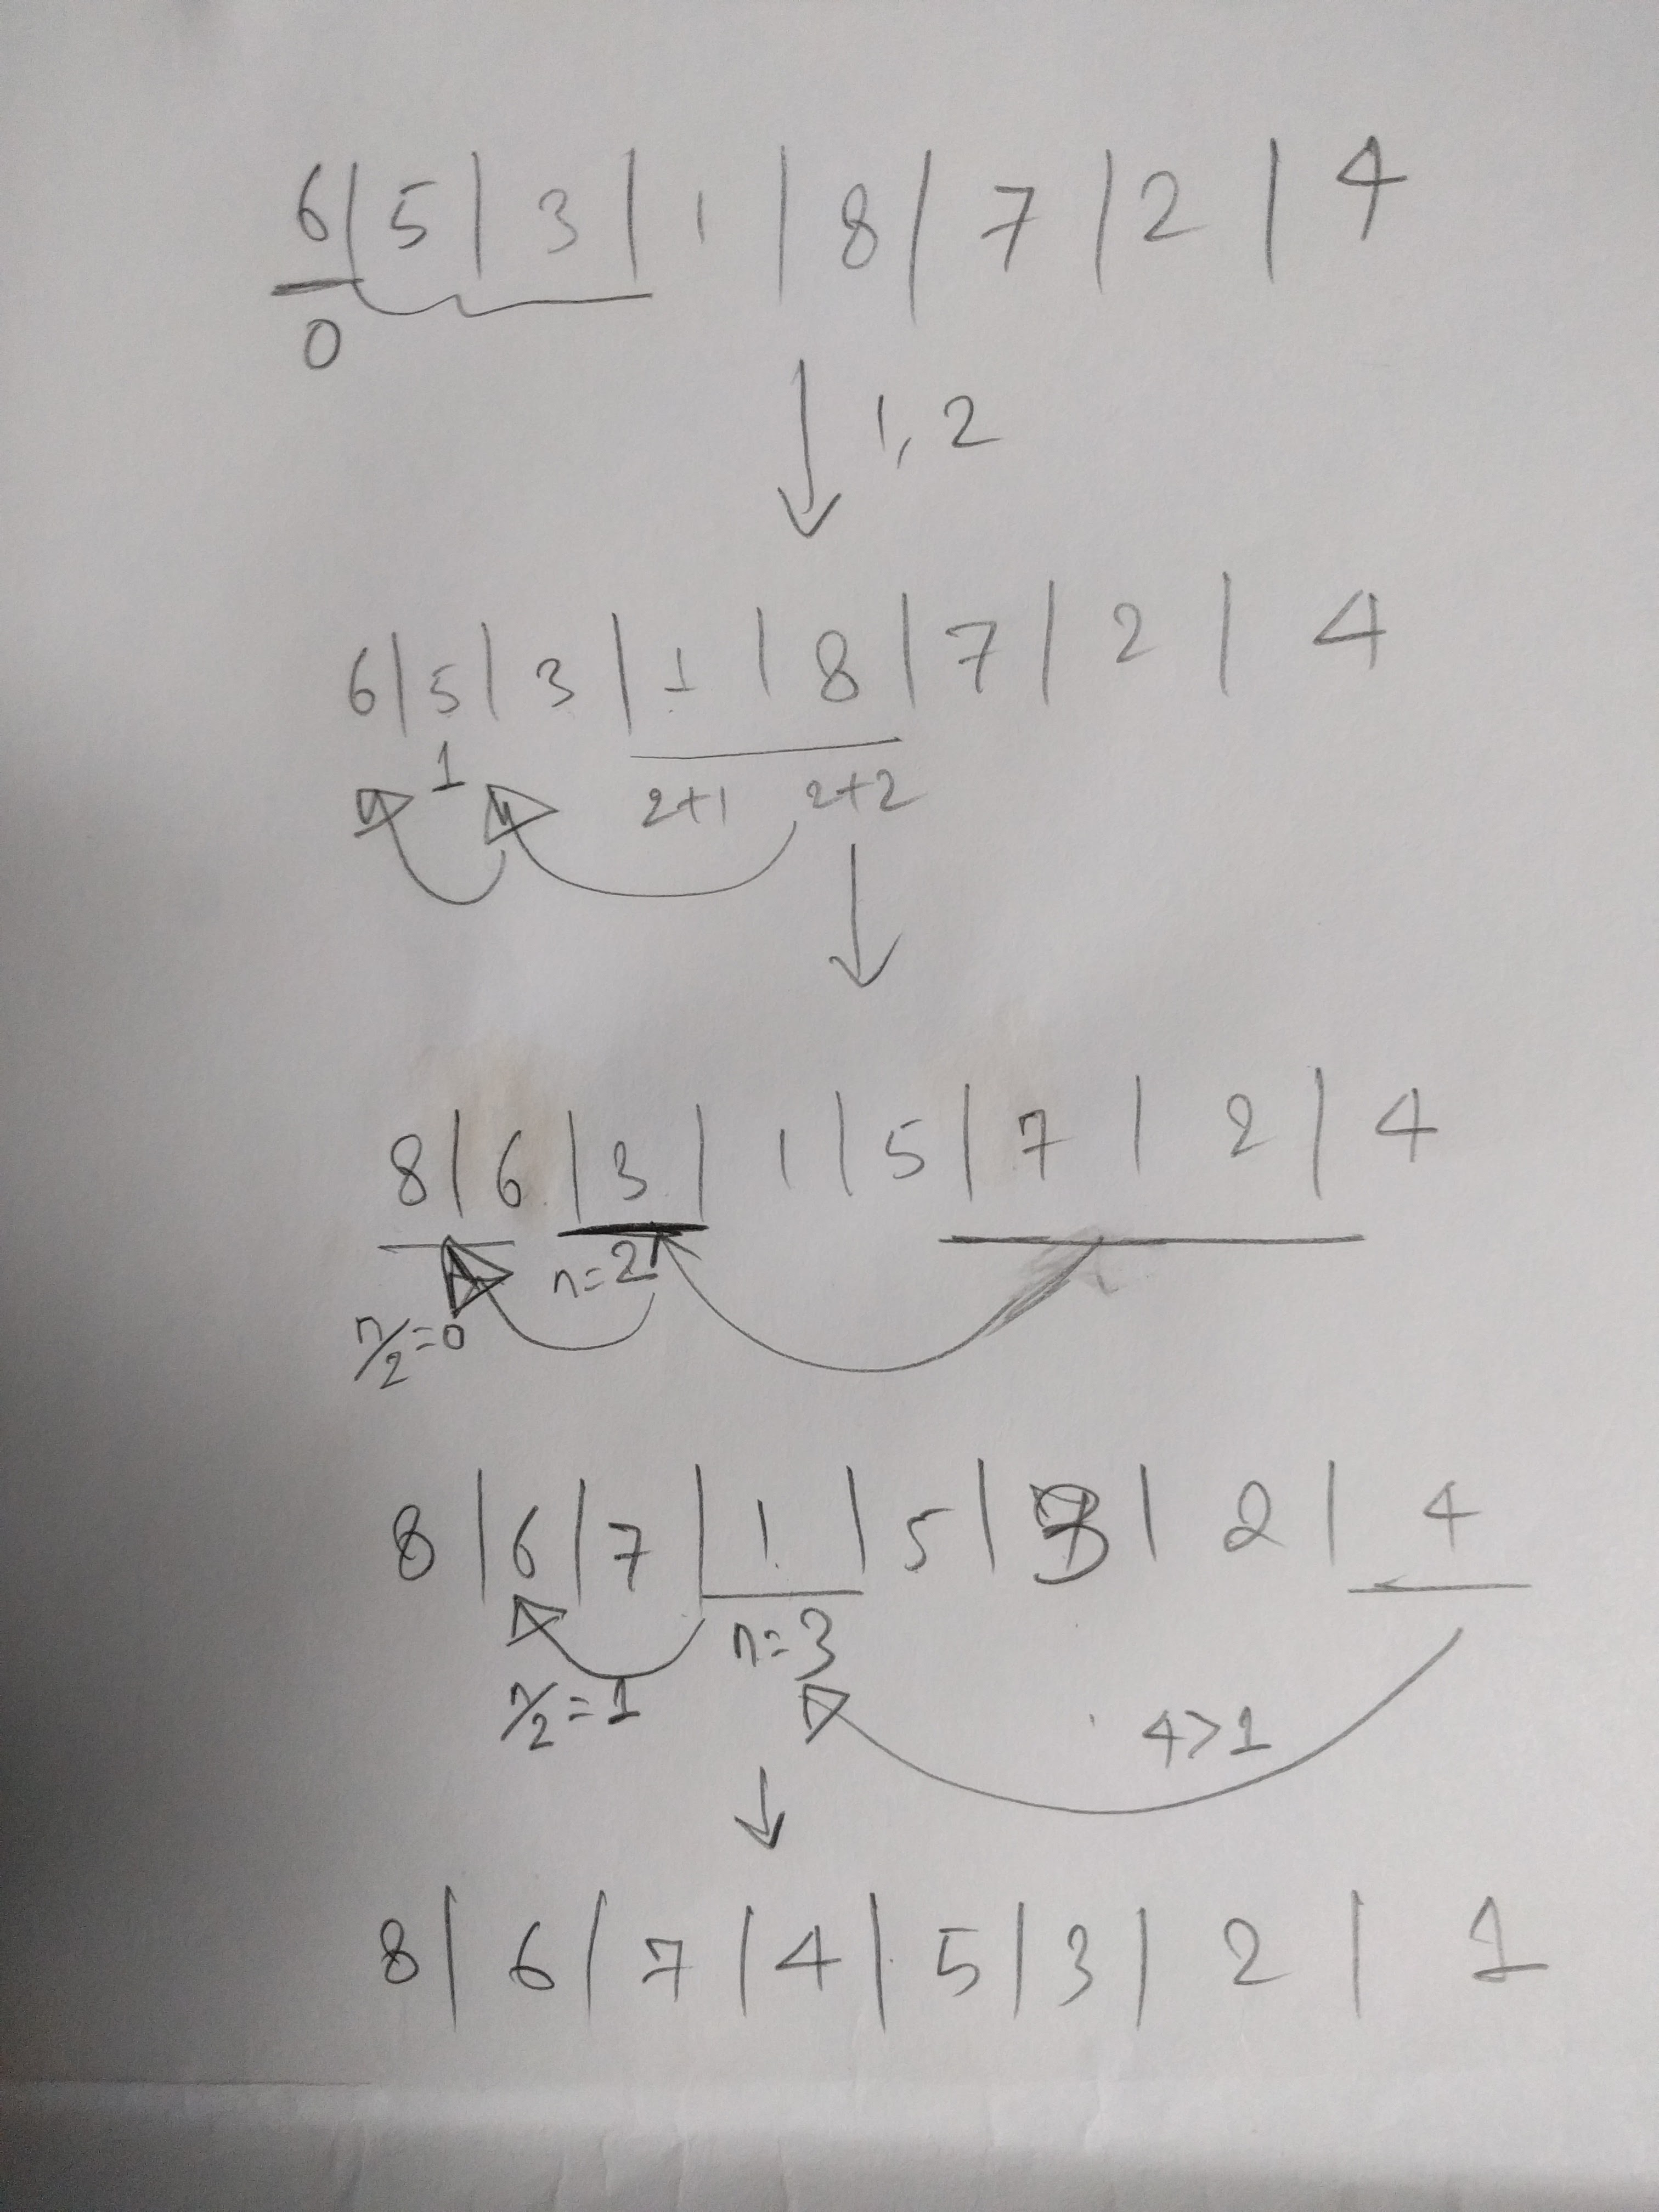 6|5|3|1|8|7|2|4
0
1,2
6|5|3|1|8|7|2|4
1
2+1 2+2
8|6|3|1|5|7|2|4
n=2
n/2=0
8|6|7|1|5|3|2|4
n=3
n/2=1
4>1
8|6|7|4|5|3|2|1